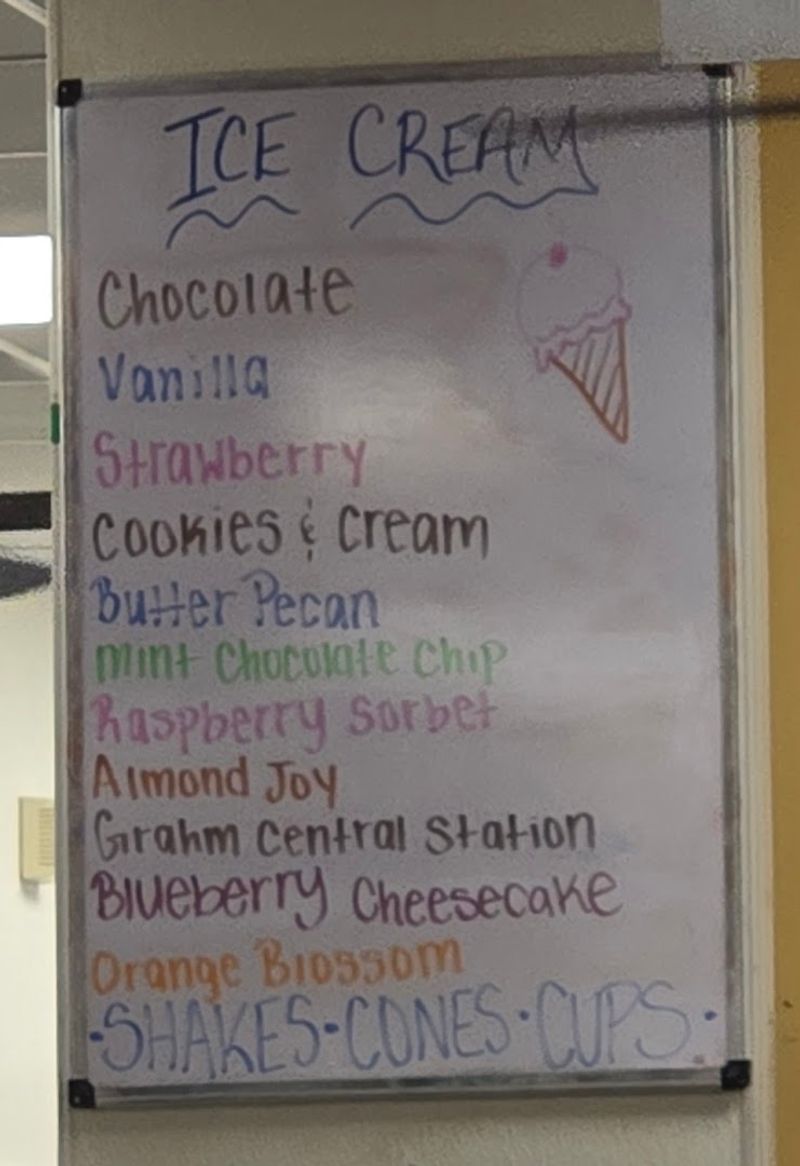 ICE CREAM
Chocolate
Vanilla
Strawberry
Cookies & Cream
Butter Pecan
Mint Chocolate Chip
Raspberry Sorbet
Almond Joy
Grahm Central Station
Blueberry Cheesecake
Orange Blossom
•SHAKES•CONES•CUPS•